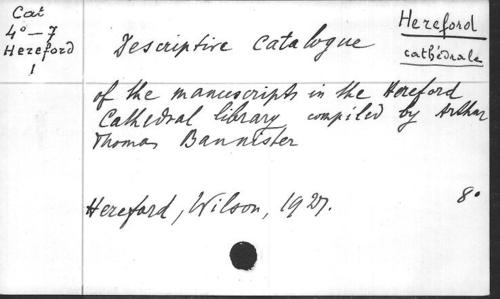 Cat
4° — 7
Hereford
1
Hereford
cathédrale
Descriptive catalogue
of the manuscripts in the Hereford
Cathedral library compiled by Arthur
Thomas Bannister
Hereford, Wilson, 1927.
8°